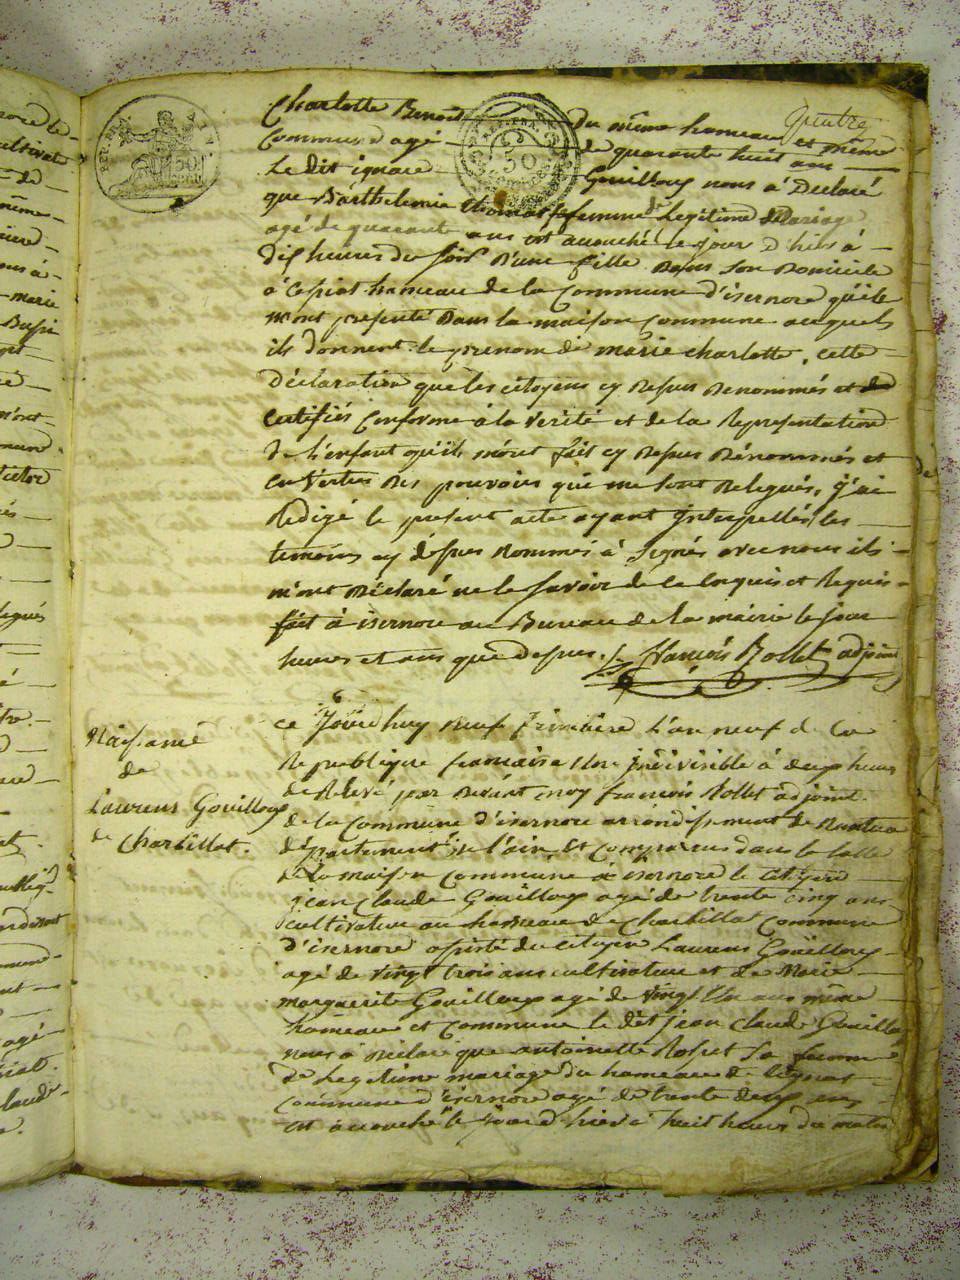 quatre
Charlotte Benoit du même hameau et même
Commune d agé de quarante huit ans
Le dit ignace Gouilloux nous à Déclaré
que Barthelemie thomas sa femme de Legitime Mariage
agé de quarante ans est acouché le jour D'hier à
Dix heures du soir D'une fille Dans son Domicile
à Cessiat hameau de la Commune d'isernore qu'ils
m'ont presenté Dans la maison Commune auquels
ils donnent le prenom de marie charlotte, cette
Déclaration que les citoyens cy Desus Denommés et
certifiés Conforme à la Verité et de la Representation
de L'enfant qu'ils m'ont fait cy Desus Dénommés et
en Vertus Des pouvoirs qui me sont Delegués, j'ai
Redigé le present acte ayant Interpellés les
temoins cy désus Nommés à signés avec nous ils
m'ont Déclaré ne le savoir de ce Enquis et Requis
fait à isernore au Bureau de la mairie le jour
heures et ans que Desus. françois Rollet adjoint
Naissance
de
Laurens Gouilloux
de Charbillat.
ce Jourd huy neuf frimaire L'an neuf de la
Republique francaise une indivisible à deux heures
de Relevé par Devant moy françois Rollet adjoint
de la Commune d'isernore arrondissement de Nantua
departement de l'ain Est Comparus dans la Salle
de La maison Commune à isernore le Citoyen
jean Claude Gouilloux agé de trente cinq ans
cultivateur au hameau de Charbillat Commune
d'isernore assisté du Citoyen Laurens Gouilloux
agé de vingt trois ans cultivateur et de Marie
marguerite Gouilloux agé de vingt un ans même
hameau et Commune le dit jean Claude Gouilloux
nous à Déclaré que antoinette Rosset Sa femme
de Legitime mariage du hameau de
Commune d'isernore agé de trente deux ans
est acouché le jour d'hier à huit heures du matin